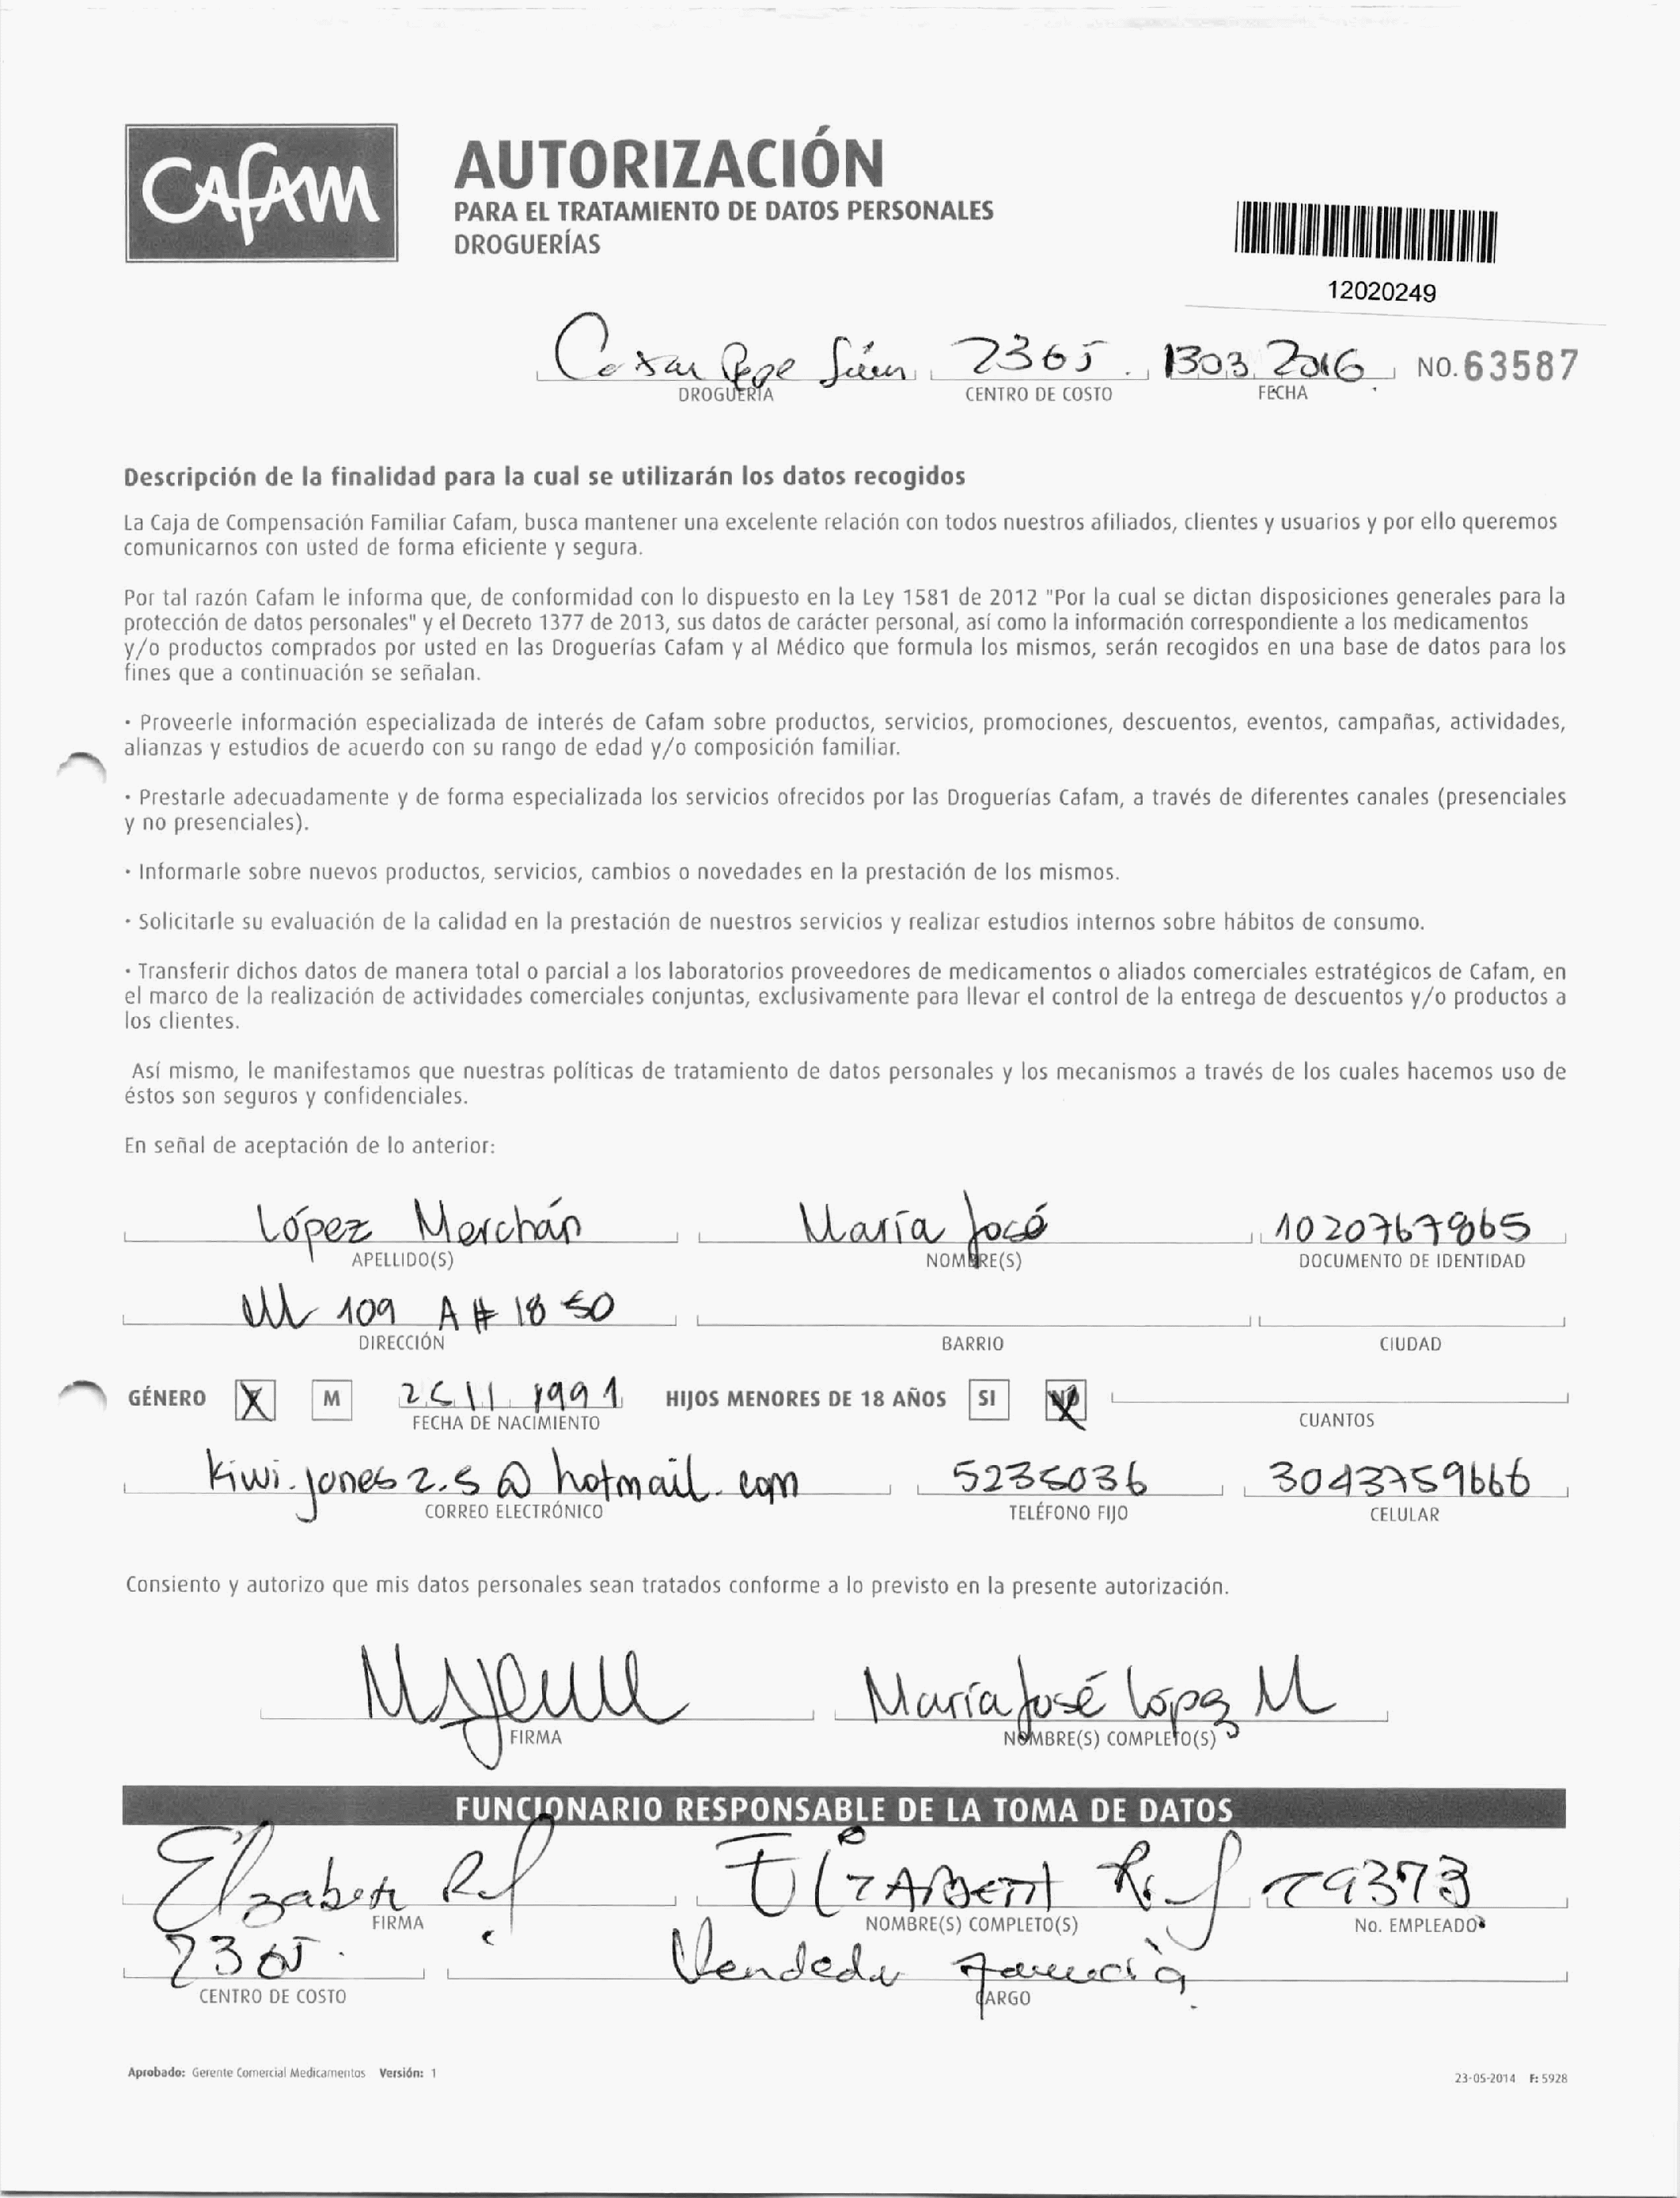 CAFAM
AUTORIZACIÓN
PARA EL TRATAMIENTO DE DATOS PERSONALES
DROGUERÍAS
12020249
2365 1303 2016 NO. 63587
DROGUERÍA CENTRO DE COSTO FECHA
Descripción de la finalidad para la cual se utilizarán los datos recogidos
La Caja de Compensación Familiar Cafam, busca mantener una excelente relación con todos nuestros afiliados, clientes y usuarios y por ello queremos
comunicarnos con usted de forma eficiente y segura.
Por tal razón Cafam le informa que, de conformidad con lo dispuesto en la Ley 1581 de 2012 "Por la cual se dictan disposiciones generales para la
protección de datos personales" y el Decreto 1377 de 2013, sus datos de carácter personal, así como la información correspondiente a los medicamentos
y/o productos comprados por usted en las Droguerías Cafam y al Médico que formula los mismos, serán recogidos en una base de datos para los
fines que a continuación se señalan.
· Proveerle información especializada de interés de Cafam sobre productos, servicios, promociones, descuentos, eventos, campañas, actividades,
alianzas y estudios de acuerdo con su rango de edad y/o composición familiar.
· Prestarle adecuadamente y de forma especializada los servicios ofrecidos por las Droguerías Cafam, a través de diferentes canales (presenciales
y no presenciales).
· Informarle sobre nuevos productos, servicios, cambios o novedades en la prestación de los mismos.
· Solicitarle su evaluación de la calidad en la prestación de nuestros servicios y realizar estudios internos sobre hábitos de consumo.
· Transferir dichos datos de manera total o parcial a los laboratorios proveedores de medicamentos o aliados comerciales estratégicos de Cafam, en
el marco de la realización de actividades comerciales conjuntas, exclusivamente para llevar el control de la entrega de descuentos y/o productos a
los clientes.
Así mismo, le manifestamos que nuestras políticas de tratamiento de datos personales y los mecanismos a través de los cuales hacemos uso de
éstos son seguros y confidenciales.
En señal de aceptación de lo anterior:
López Merchán María José 1020767865
APELLIDO(S) NOMBRE(S) DOCUMENTO DE IDENTIDAD
109 A # 18 50
DIRECCIÓN BARRIO CIUDAD
GÉNERO X M 25 11 1991 HIJOS MENORES DE 18 AÑOS SI NO
FECHA DE NACIMIENTO CUANTOS
kiwi.jones2.5@hotmail.com 5235036 3043759666
CORREO ELECTRÓNICO TELÉFONO FIJO CELULAR
Consiento y autorizo que mis datos personales sean tratados conforme a lo previsto en la presente autorización.
María José López M
FIRMA NOMBRE(S) COMPLETO(S)
FUNCIONARIO RESPONSABLE DE LA TOMA DE DATOS
Elizabeth ELIZABETH 79373
FIRMA NOMBRE(S) COMPLETO(S) No. EMPLEADO
2365. Vendedor
CENTRO DE COSTO CARGO
Aprobado: Gerente Comercial Medicamentos Versión: 1 23-05-2014 F: 5928